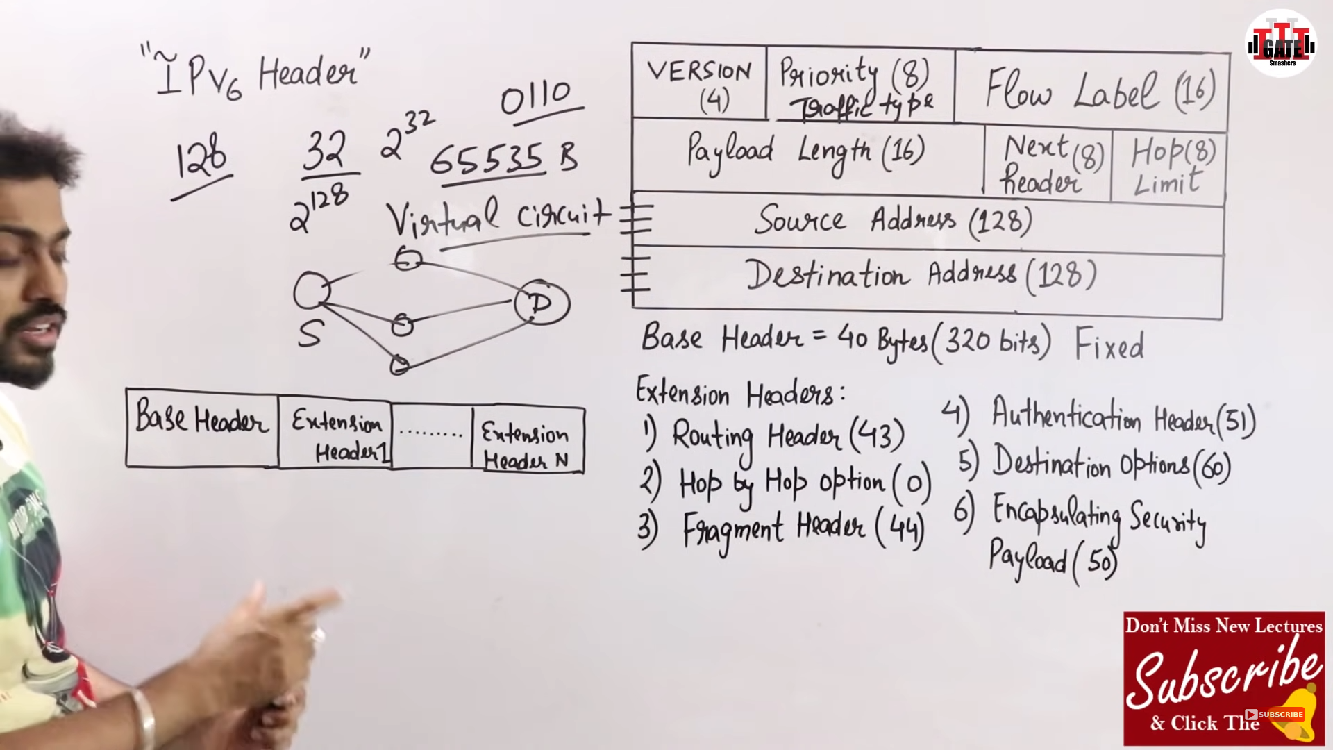 "IPv6 Header"
128
32
2^128
2^32
0110
65535 B
Virtual circuit
S
D
Base Header
Extension Header 1
........
Extension Header N
VERSION (4)
Priority (8)
Traffic type
Flow Label (16)
Payload Length (16)
Next header (8)
Hop Limit (8)
Source Address (128)
Destination Address (128)
Base Header = 40 Bytes (320 bits) Fixed
Extension Headers:
1) Routing Header (43)
2) Hop by Hop option (0)
3) Fragment Header (44)
4) Authentication Header (51)
5) Destination Options (60)
6) Encapsulating Security
Payload (50)
GATE
Smashers
Don't Miss New Lectures
Subscribe
& Click The
SUBSCRIBE